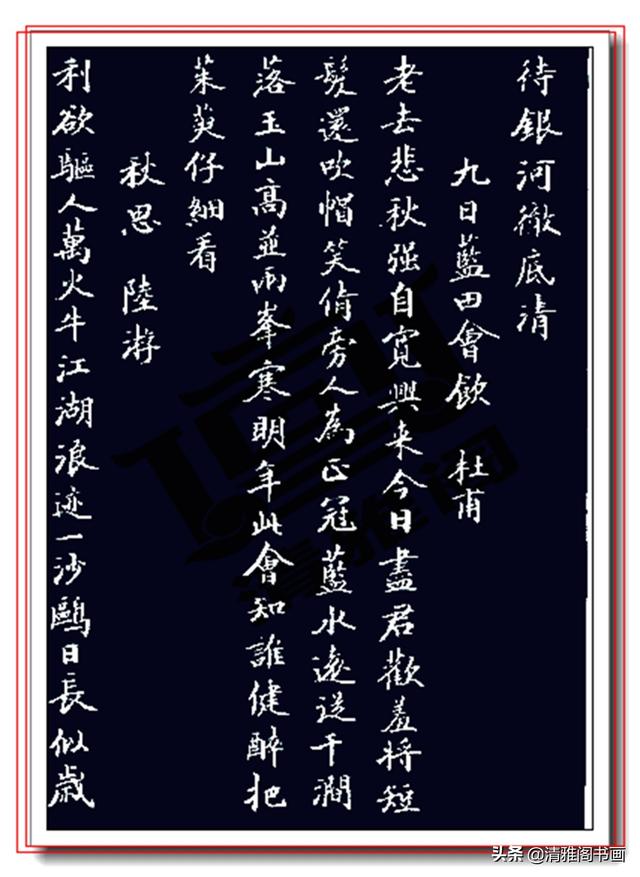 待銀河徹底清
九日藍田會飲 杜甫
老去悲秋强自寬興来今日盡君歡羞將短
髮還吹帽笑倩旁人為正冠藍水遠送千澗
落玉山高並兩峯寒明年此會知誰健醉把
茱萸仔細看
秋思 陸游
利欲驅人萬火牛江湖浪迹一沙鷗日長似歲
清雅阁
头条@清雅阁书画